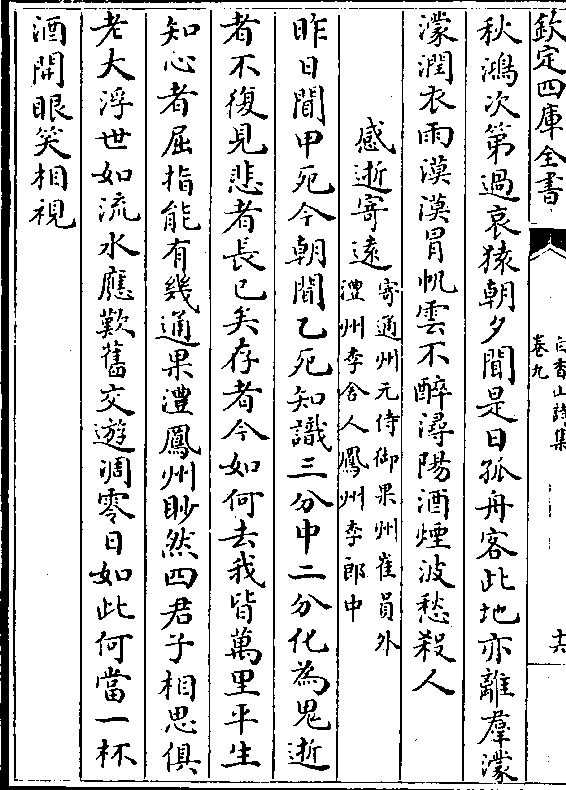 欽定四庫全書
白香山詩集
卷九
十六
秋鴻次第過哀猿朝夕聞是日孤舟客此地亦離羣濛
濛潤衣雨漠漠冒帆雲不醉潯陽酒煙波愁殺人
感逝寄遠
寄通州元侍御果州崔員外
澧州李舍人鳳州李郎中
昨日聞甲死今朝聞乙死知識三分中二分化為鬼逝
者不復見悲者長已矣存者今如何去我皆萬里平生
知心者屈指能有幾通果澧鳳州眇然四君子相思俱
老大浮世如流水應歎舊交遊凋零日如此何當一杯
酒開眼笑相視